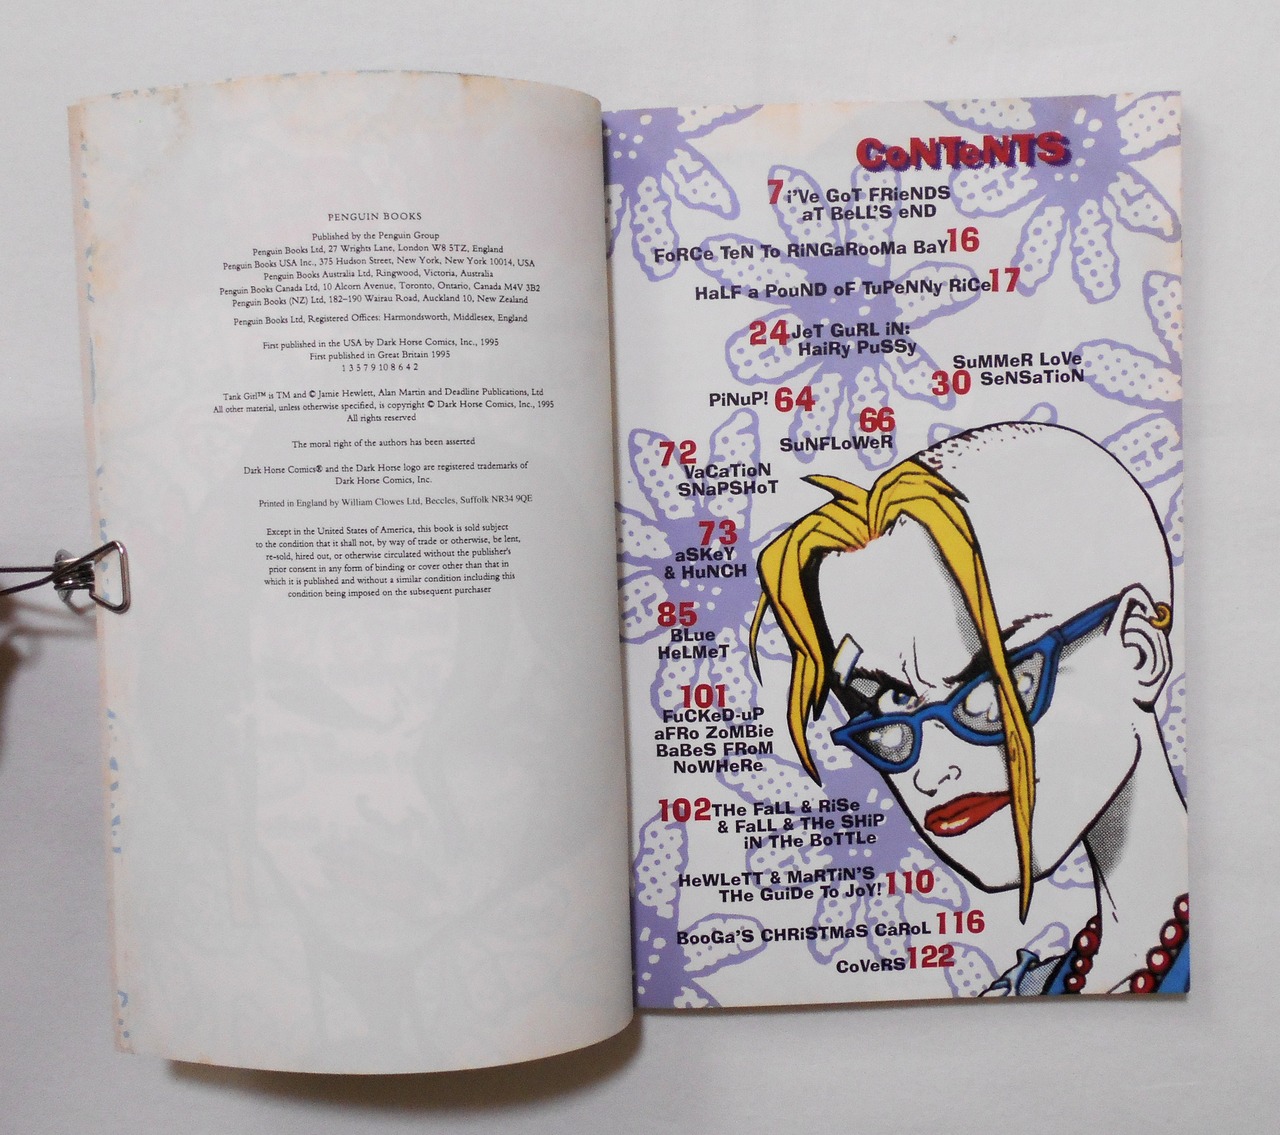 PENGUIN BOOKS
Published by the Penguin Group
Penguin Books Ltd, 27 Wrights Lane, London W8 5TZ, England
Penguin Books USA Inc., 375 Hudson Street, New York, New York 10014, USA
Penguin Books Australia Ltd, Ringwood, Victoria, Australia
Penguin Books Canada Ltd, 10 Alcorn Avenue, Toronto, Ontario, Canada M4V 3B2
Penguin Books (NZ) Ltd, 182–190 Wairau Road, Auckland 10, New Zealand
Penguin Books Ltd, Registered Offices: Harmondsworth, Middlesex, England
First published in the USA by Dark Horse Comics, Inc., 1995
First published in Great Britain 1995
1 3 5 7 9 10 8 6 4 2
Tank Girl™ is TM and © Jamie Hewlett, Alan Martin and Deadline Publications, Ltd
All other material, unless otherwise specified, is copyright © Dark Horse Comics, Inc., 1995
All rights reserved
The moral right of the authors has been asserted
Dark Horse Comics® and the Dark Horse logo are registered trademarks of
Dark Horse Comics, Inc.
Printed in England by William Clowes Ltd, Beccles, Suffolk NR34 9QE
Except in the United States of America, this book is sold subject
to the condition that it shall not, by way of trade or otherwise, be lent,
re-sold, hired out, or otherwise circulated without the publisher's
prior consent in any form of binding or cover other than that in
which it is published and without a similar condition including this
condition being imposed on the subsequent purchaser
CoNTeNTS
7 i'Ve GoT FRieNDS
aT BeLL'S eND
FoRCe TeN To RiNGaRooMa BaY 16
HaLF a PouND oF TuPeNNy RiCe 17
24 JeT GuRL iN:
HaiRy PuSSy
SuMMeR LoVe
30 SeNSaTioN
PiNuP! 64
66
SuNFLoWeR
72
VaCaTioN
SNaPSHoT
73
aSKeY
& HuNCH
85
BLue
HeLMeT
101
FuCKeD-uP
aFRo ZoMBie
BaBeS FRoM
NoWHeRe
102 THe FaLL & RiSe
& FaLL & THe SHiP
iN THe BoTTLe
HeWLeTT & MaRTiN'S
THe GuiDe To JoY! 110
BooGa'S CHRiSTMaS CaRoL 116
CoVeRS 122